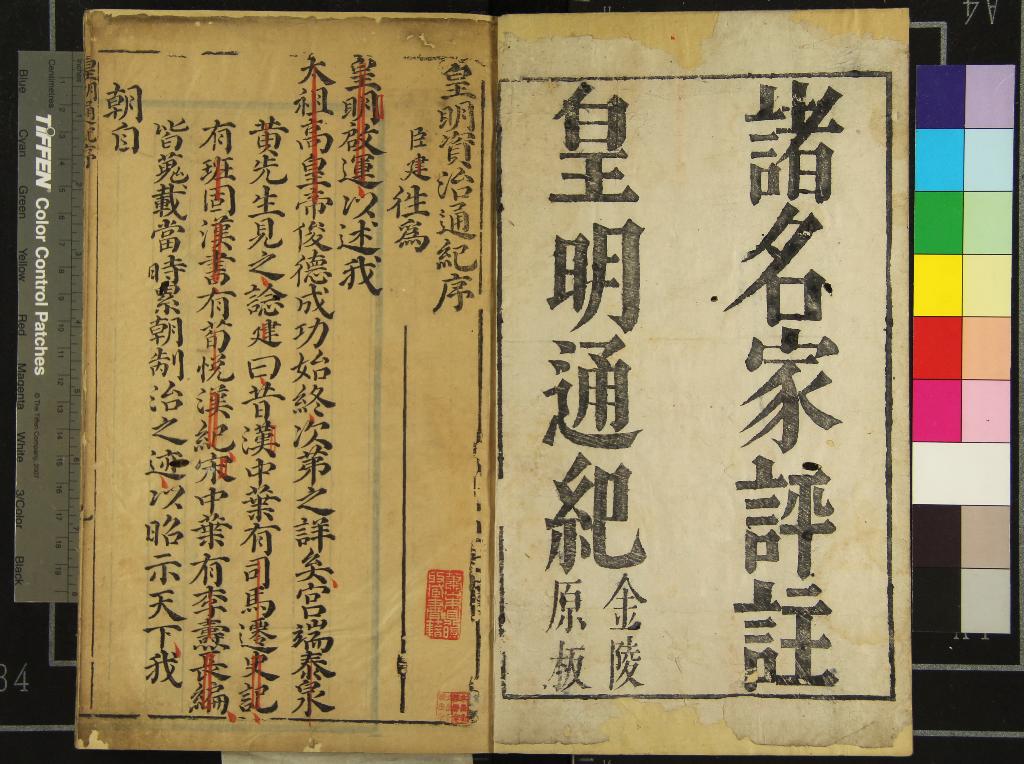 諸名家評註
皇明通紀
金陵
原板
皇明資治通紀序
臣建往為
皇明啟運以述我
太祖高皇帝俊德成功始終次第之詳矣宮端泰泉
黃先生見之諗建曰昔漢中葉有司馬遷史記
有班固漢書有荀悅漢紀宋中葉有李燾長編
皆蒐載當時累朝制治之迹以昭示天下我
朝自
皇明通紀序
TIFFEN Color Control Patches
© The Tiffen Company, 2007
Centimetres
Inches
Blue
Cyan
Green
Yellow
Red
Magenta
White
3/Color
Black
A4